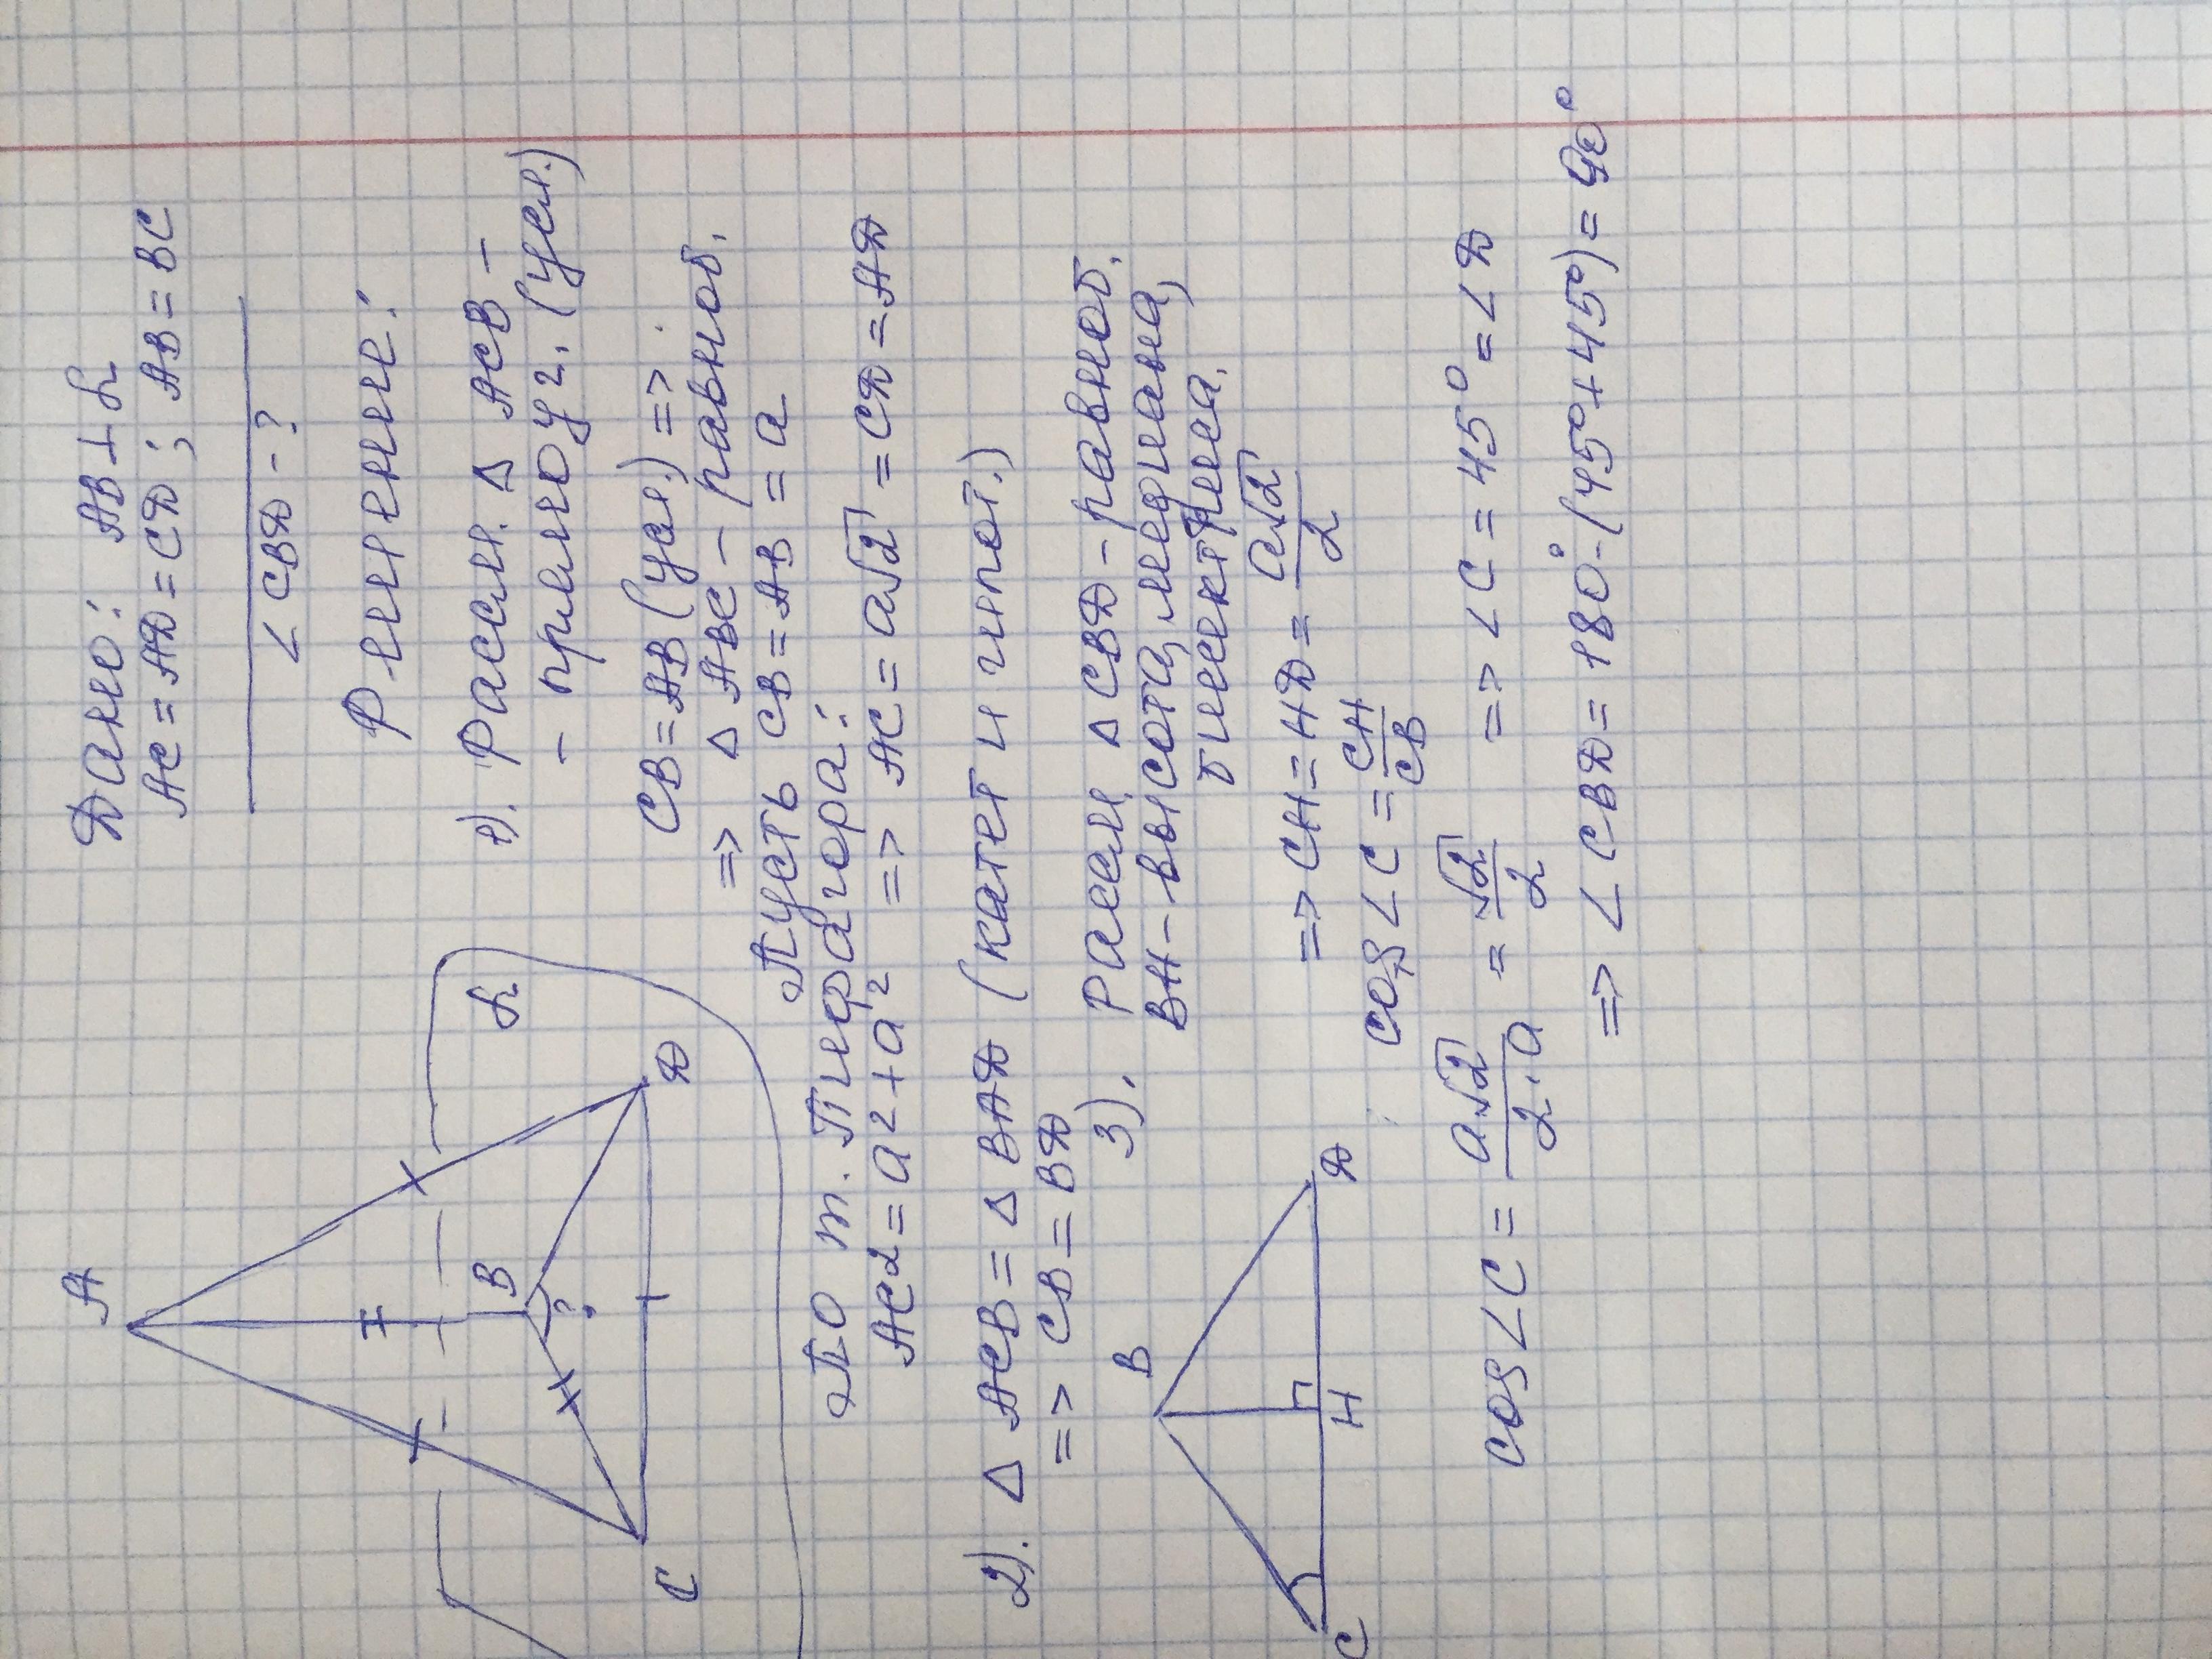 Дано: AB ⊥ α
AC = AD = CD; AB = BC
∠ CBD - ?
Решение:
1). Рассм. Δ ACB -
- прямоуг. (усл.)
CB = AB (усл.) =>
=> Δ ABC - равноб.
Пусть CB = AB = a
По т. Пифагора:
AC² = a² + a² => AC = a√2 = CD = AD
2). Δ ACB = Δ BAD (катет и гипот.)
=> CB = BD
3). Рассм. Δ CBD - равноб.
BH - высота, медиана,
биссектриса.
=> CH = HD = a√2/2
cos ∠ C = CH/CB
cos ∠ C = a√2/2·a = √2/2 => ∠ C = 45° = ∠ D
=> ∠ CBD = 180° - (45° + 45°) = 90°
A
B
C
D
α
?
B
C
H
D